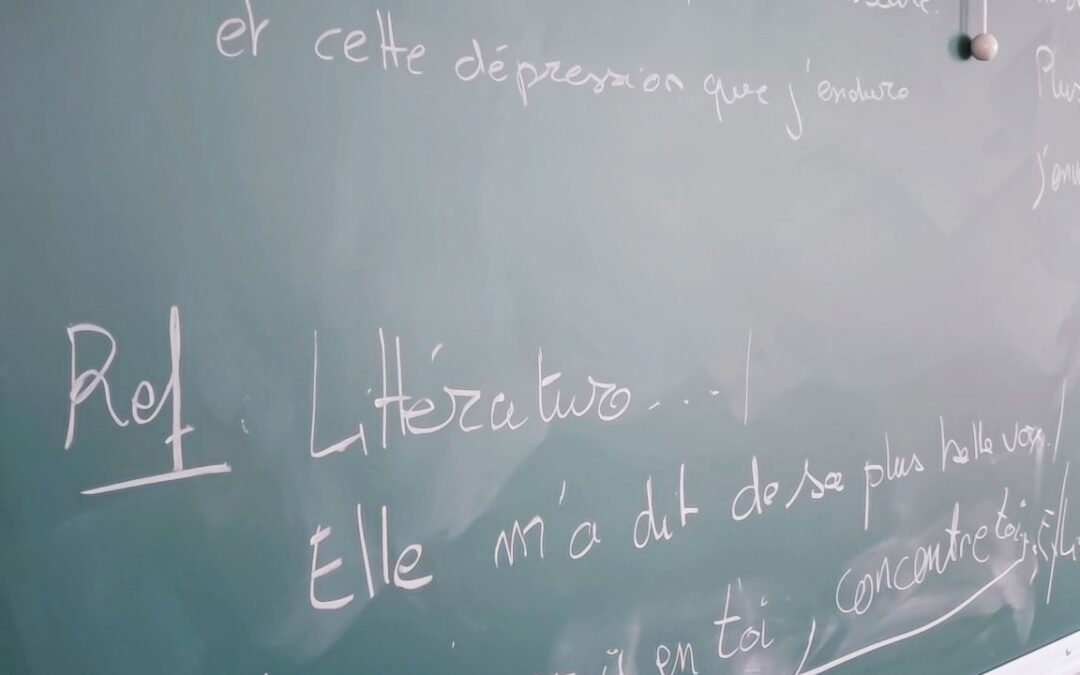 et cette dépression que j'endure
Plus
Ref : Littérature...!
Elle m'a dit de sa plus belle voix
en toi, concontre toi,